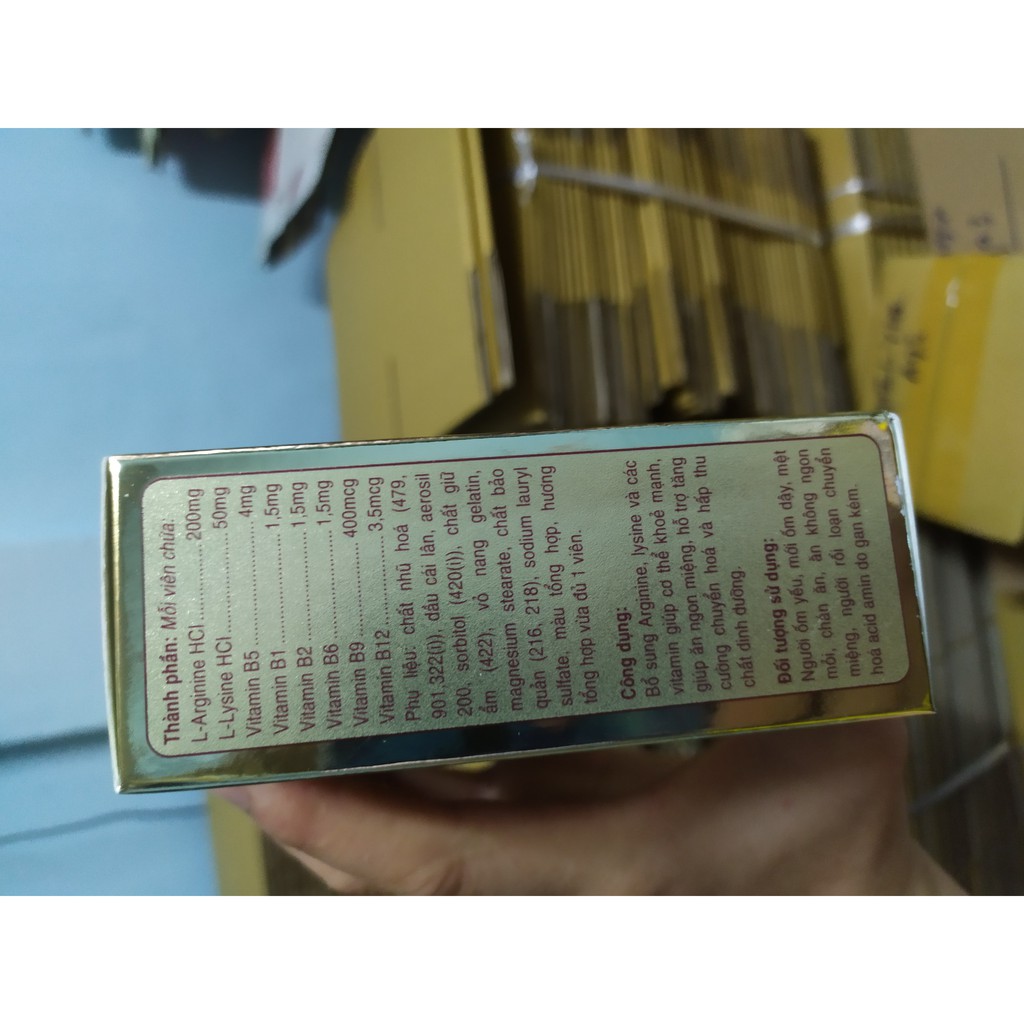 Thành phần: Mỗi viên chứa:
L-Arginine HCl..............200mg
L-Lysine HCl..................50mg
Vitamin B5.......................4mg
Vitamin B1....................1,5mg
Vitamin B2....................1,5mg
Vitamin B6....................1,5mg
Vitamin B9.................400mcg
Vitamin B12................3,5mcg
Phụ liệu: chất nhũ hoá (479,
901,322(i)), dầu cải lân, aerosil
200, sorbitol (420(i)), chất giữ
ẩm (422), vỏ nang gelatin,
magnesium stearate, chất bảo
quản (216, 218), sodium lauryl
sulfate, màu tổng hợp, hương
tổng hợp vừa đủ 1 viên.
Công dụng:
Bổ sung Arginine, lysine và các
vitamin giúp cơ thể khoẻ mạnh,
giúp ăn ngon miệng, hỗ trợ tăng
cường chuyển hoá và hấp thu
chất dinh dưỡng.
Đối tượng sử dụng:
Người ốm yếu, mới ốm dậy, mệt
mỏi, chán ăn, ăn không ngon
miệng, người rối loạn chuyển
hoá acid amin do gan kém.